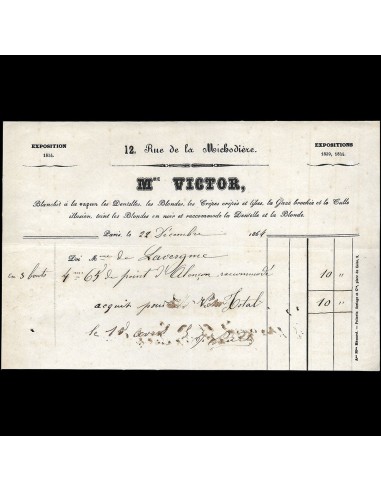 EXPOSITION
1834.
12. Rue de la Michodière.
EXPOSITIONS
1839, 1844.
Mme VICTOR,
Blanchit à la vapeur les Dentelles, les Blondes, les Crêpes crêpés et lisses, la Gaze brochée et le Tulle
teint les Blondes en noir et raccommode la Dentelle et la Blonde.
Paris, le 22 Décembre 1864
Doi Mme de Lavergne
en 3 bouts 4 m 65 de point d'Alençon raccommodé 10 "
acquit pour Victor Total 10 "
le 1er avril